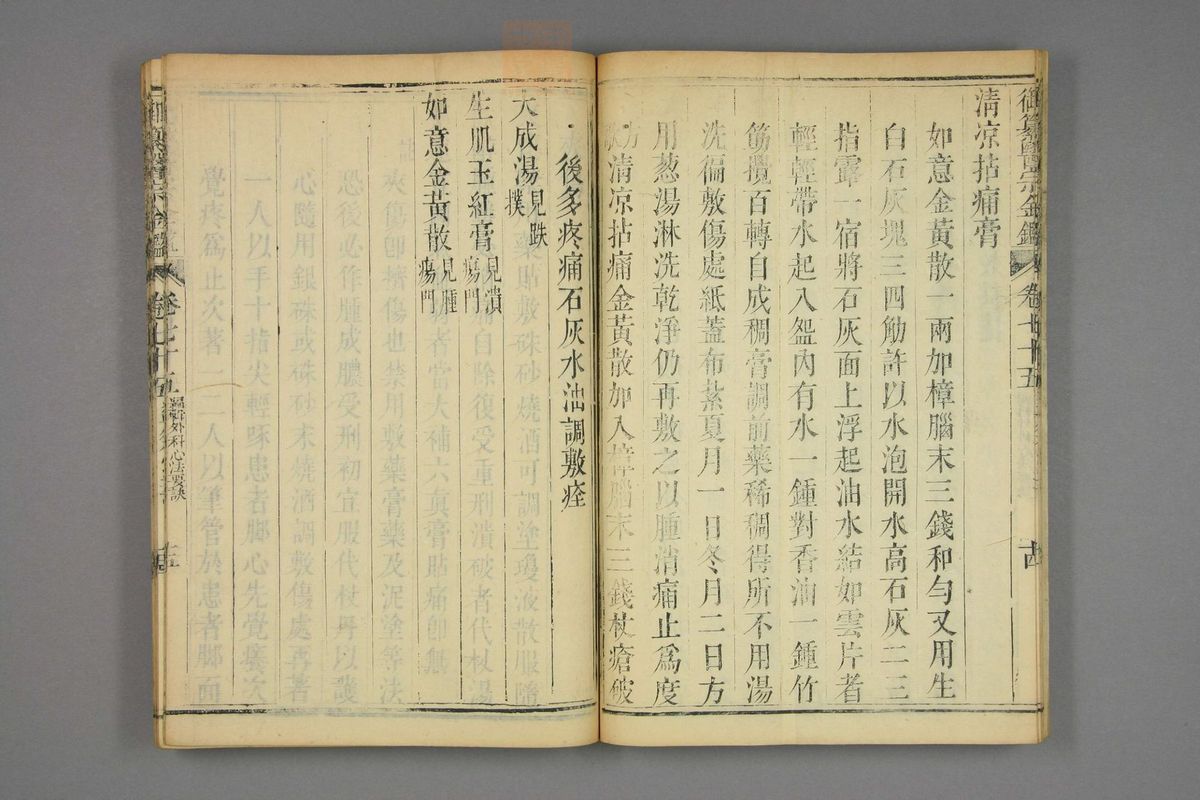 御纂醫宗金鑑 卷七十五 十四
清凉拈痛膏
如意金黃散一兩加樟腦末三錢和勻又用生
白石灰塊三四觔許以水泡開水高石灰二三
指露一宿將石灰面上浮起油水結如雲片者
輕輕帶水起入盌內有水一鍾對香油一鍾竹
筋攪百轉自成稠膏調前藥稀稠得所不用湯
洗徧敷傷處紙蓋布紮夏月一日冬月二日方
用葱湯淋洗乾淨仍再敷之以腫消痛止爲度
方歌 清凉拈痛金黃散加入樟腦末三錢杖瘡破
後多疼痛石灰水油調敷痊
大成湯 見跌撲
生肌玉紅膏 見潰瘍門
如意金黃散 見腫瘍門
卷七十五 編輯外科心法要訣 十五